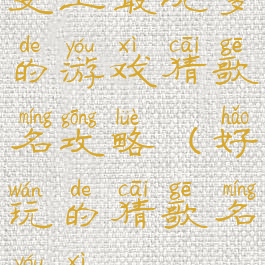 de yóu xì cāi gē
的游戏猜歌
míng gōng lüè hǎo
名攻略（好
wán de cāi gē míng
玩的猜歌名
yóu xì